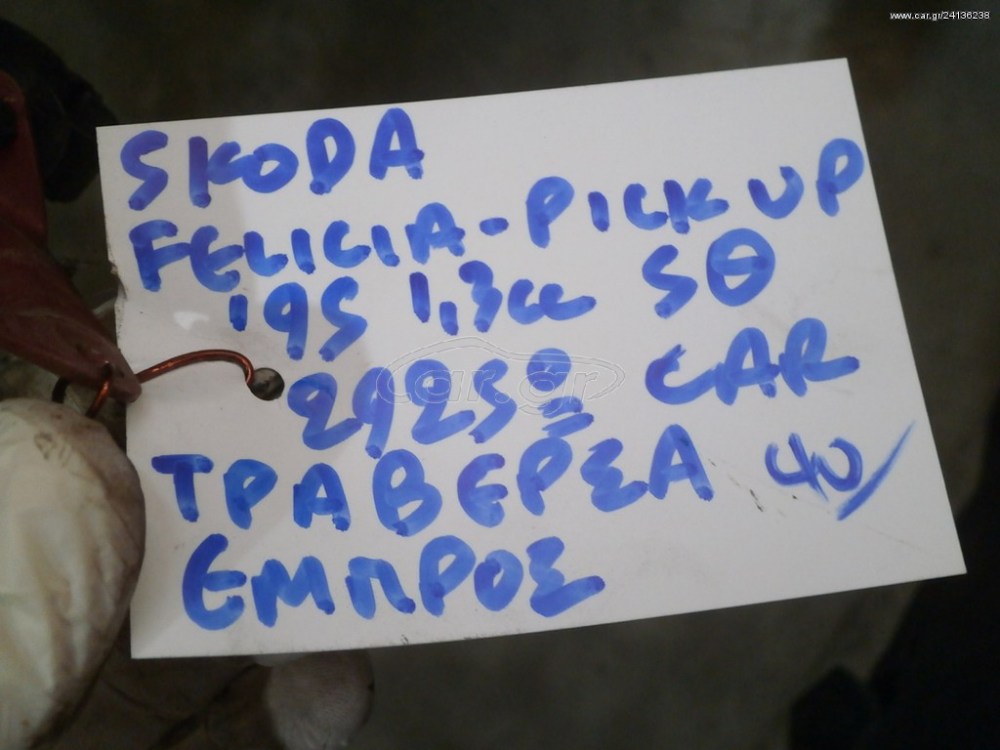 www.car.gr/24136238
SKODA
FELICIA-PICKUP
'95 1,3cc 5Θ
29250 CAR
ΤΡΑΒΕΡΣΑ 40/
ΕΜΠΡΟΣ
car.gr